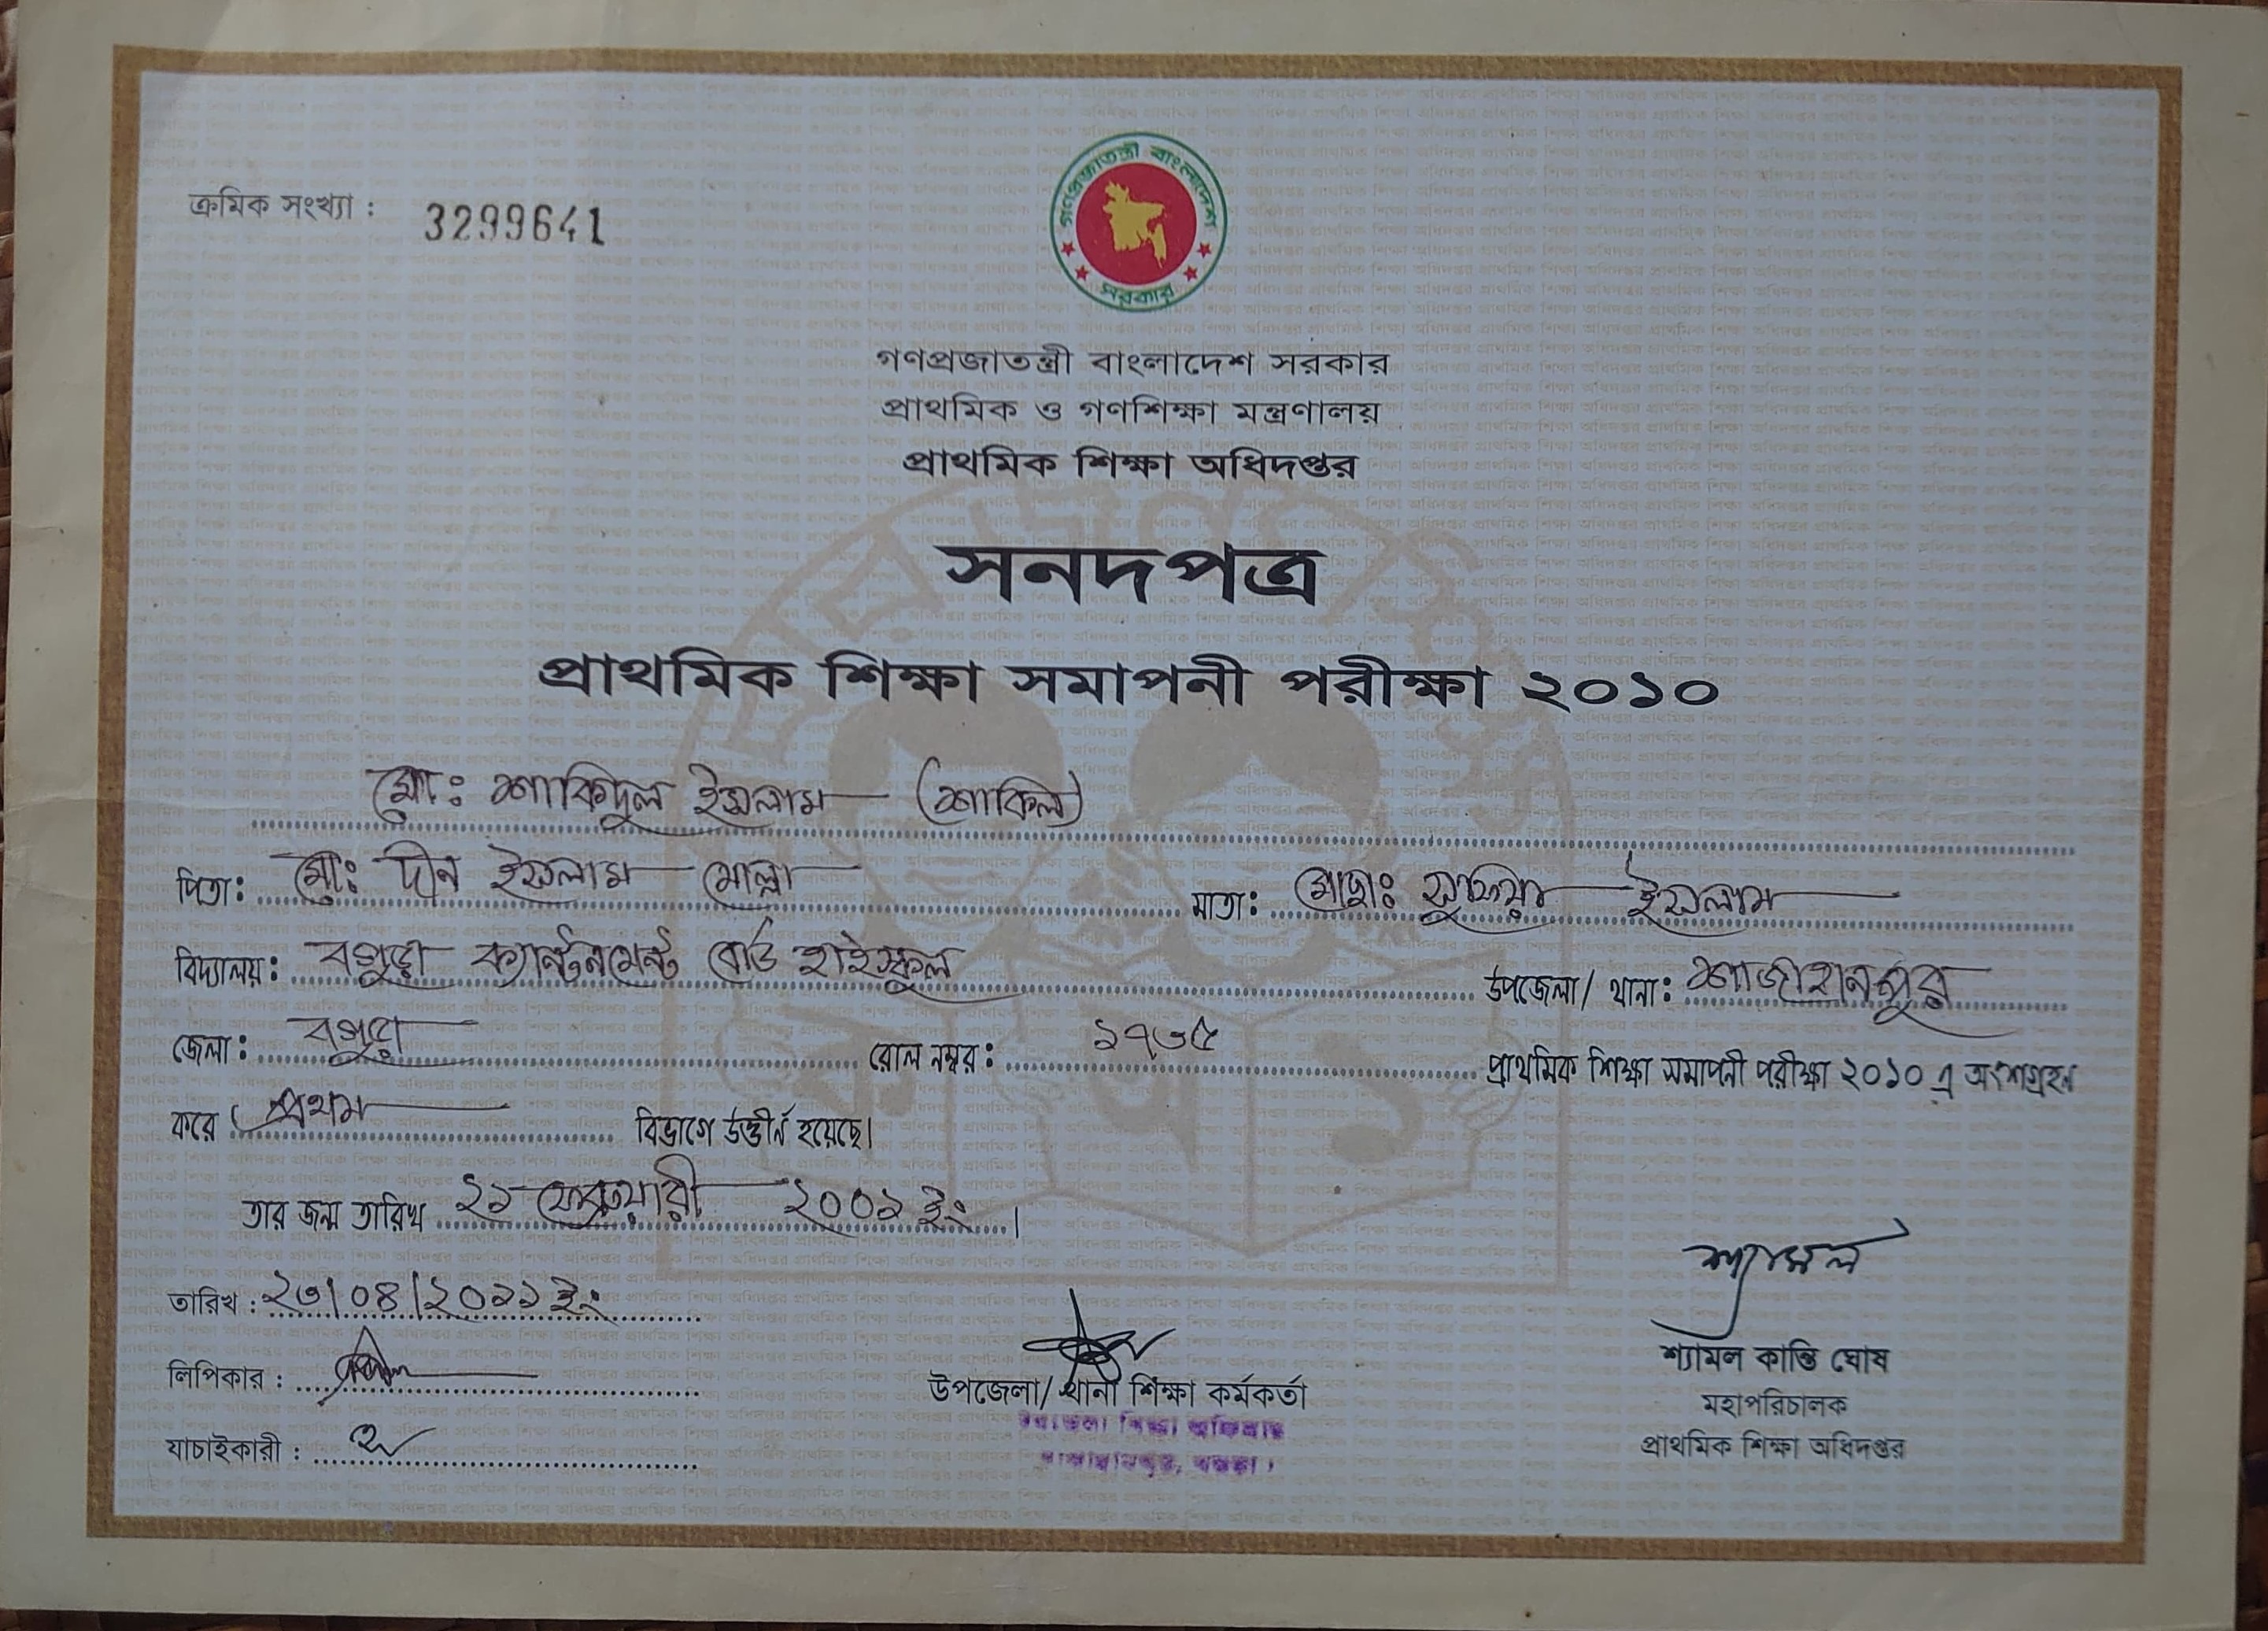 ক্রমিক সংখ্যা : 3299641
গণপ্রজাতন্ত্রী বাংলাদেশ সরকার
গণপ্রজাতন্ত্রী বাংলাদেশ সরকার
প্রাথমিক ও গণশিক্ষা মন্ত্রণালয়
প্রাথমিক শিক্ষা অধিদপ্তর
সনদপত্র
প্রাথমিক শিক্ষা সমাপনী পরীক্ষা ২০১০
মো: শাকিদুল ইসলাম (শাকিল)
পিতা: মো: দীন ইসলাম মোল্লা মাতা: মোছা: সুফিয়া ইসলাম
বিদ্যালয়: বগুড়া ক্যান্টনমেন্ট বোর্ড হাইস্কুল উপজেলা/ থানা: শাজাহানপুর
জেলা: বগুড়া রোল নম্বর: ১৭৩৫ প্রাথমিক শিক্ষা সমাপনী পরীক্ষা ২০১০ এ অংশগ্রহন
করে প্রথম বিভাগে উত্তীর্ন হয়েছে।
তার জন্ম তারিখ ২১ ফেব্রুয়ারী ২০০১ ইং ।
তারিখ : ২৩/০৪/২০১১ ইং
শ্যামল
লিপিকার :
যাচাইকারী :
উপজেলা/ থানা শিক্ষা কর্মকর্তা
উপজেলা শিক্ষা অফিসার
শাজাহানপুর, বগুড়া।
শ্যামল কান্তি ঘোষ
মহাপরিচালক
প্রাথমিক শিক্ষা অধিদপ্তর